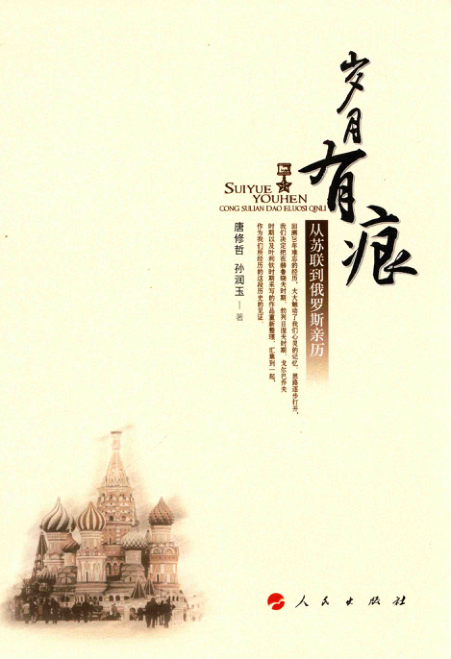 岁月有痕
SUIYUE
YOUHEN
CONG SULIAN DAO ELUOSI QINLI
从苏联到俄罗斯亲历
回溯30年难忘的经历，大大触动了我们心灵的记忆，思路逐步打开，
我们决定把在赫鲁晓夫时期、勃列日涅夫时期、戈尔巴乔夫
时期以及叶利钦时期采写的作品重新整理，汇集到一起，
作为我们所经历的这段历史的见证。
唐修哲 孙润玉 著
人民出版社